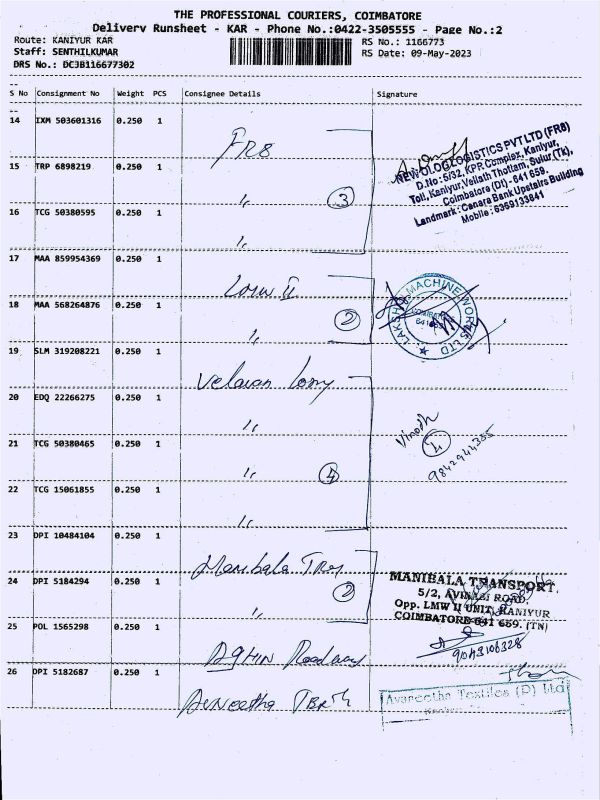 THE PROFESSIONAL COURIERS, COIMBATORE
Delivery Runsheet - KAR - Phone No.:0422-3505555 - Page No.:2
Route: KANIYUR KAR
RS No.: 1166773
Staff: SENTHILKUMAR
RS Date: 09-May-2023
DRS No.: DCJB116677302
S No Consignment No Weight PCS Consignee Details Signature
14 IXM 503601316 0.250 1
FR8
15 TRP 6898219 0.250 1
"
3
16 TCG 50380595 0.250 1
"
NEWOLOGLOGISTICS PVT LTD (FR8)
D.No : 5/32, KPR Complex, Kaniyur,
Toll, Kaniyur, Vellath Thottam, Sulur (Tk),
Coimbatore (Dt) - 641 659.
Landmark : Canara Bank Upstairs Building
Mobile : 6359133841
17 MAA 859954369 0.250 1
LMW II
2
18 MAA 568264876 0.250 1
"
MACHINE WORKS LTD
19 SLM 319208221 0.250 1
Velavan Lorry
20 EDQ 22266275 0.250 1
"
Vinoth
21 TCG 50380465 0.250 1
"
4
9842944355
22 TCG 15061855 0.250 1
"
23 DPI 10484104 0.250 1
Manibala
24 DPI 5184294 0.250 1
"
2
MANIBALA TRANSPORT,
5/2, AVINASI ROAD,
Opp. LMW II UNIT, KANIYUR
COIMBATORE-641 659. (TN)
25 POL 1565298 0.250 1
Roadway
9043106328
26 DPI 5182687 0.250 1
Avaneetha Textiles (P) Ltd